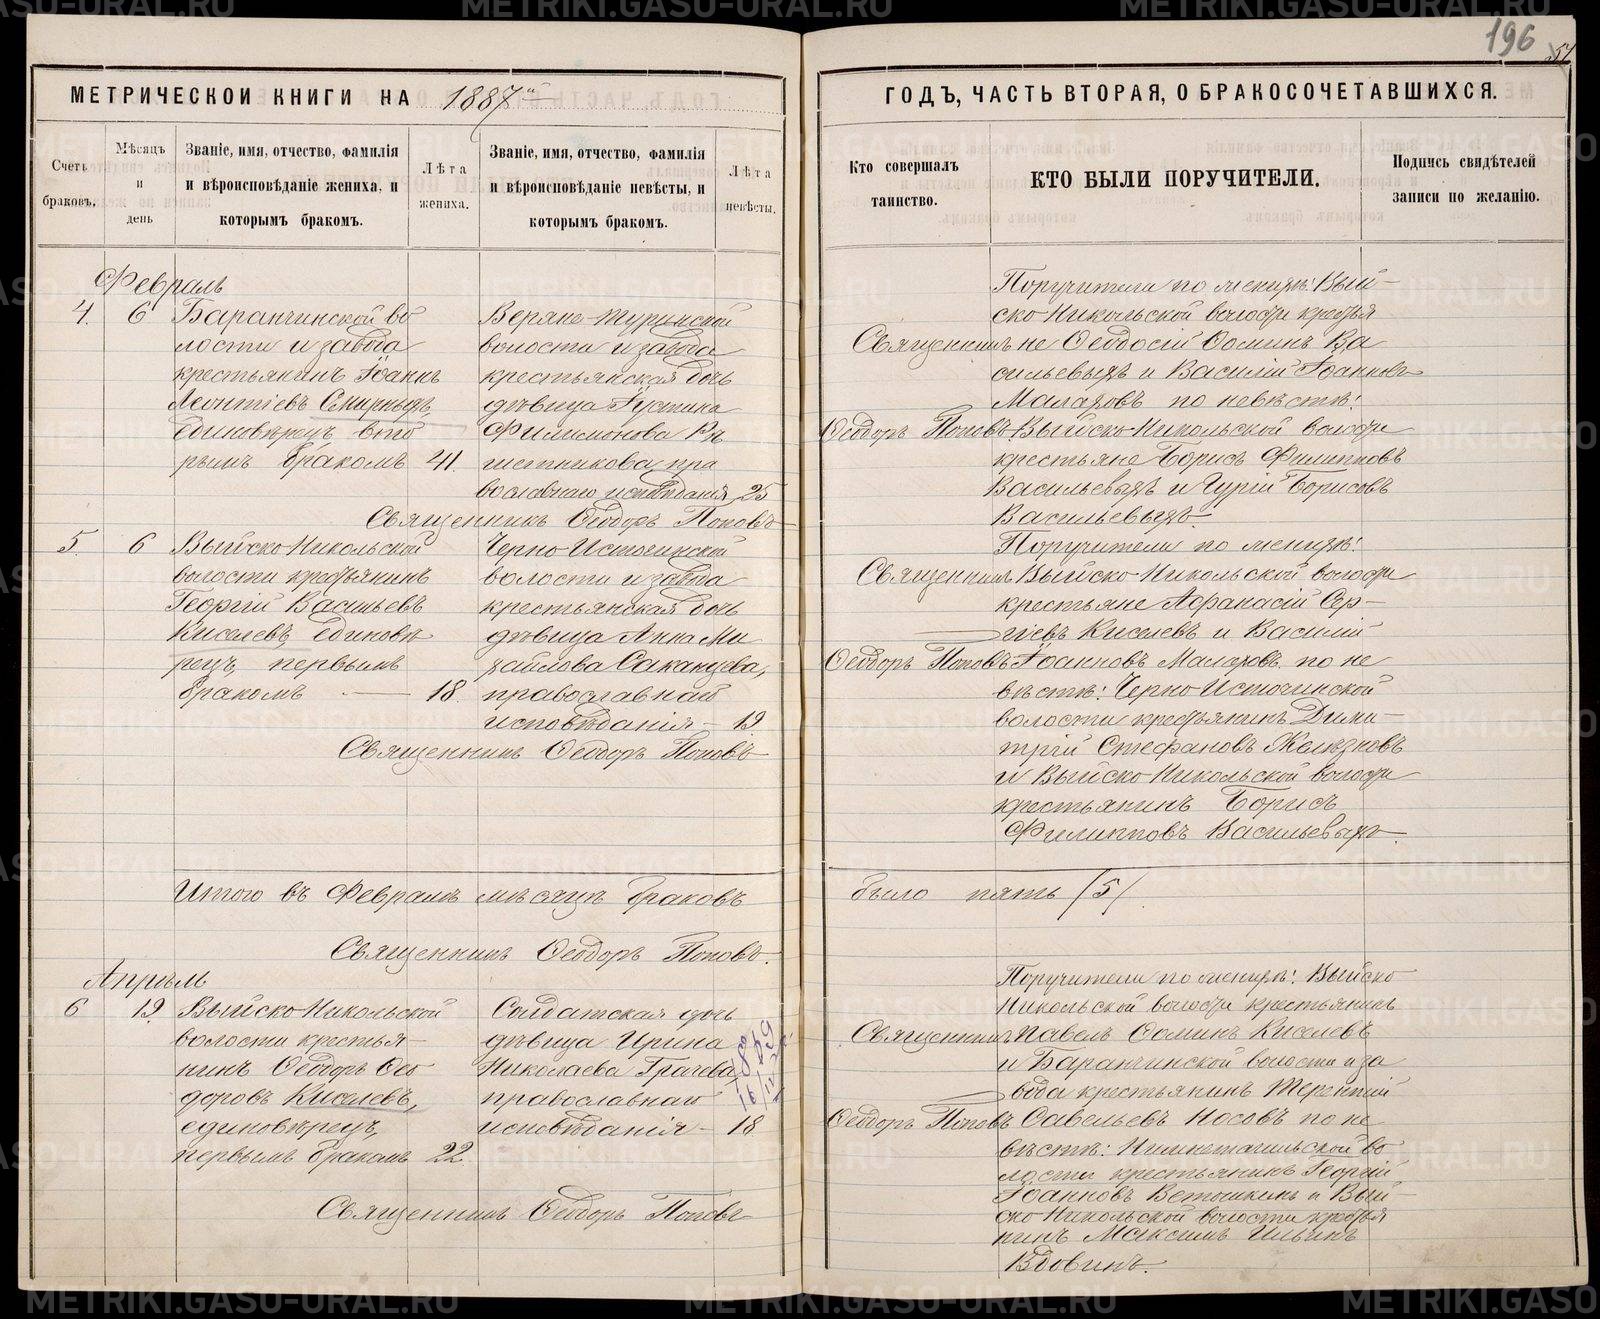 196
57
МЕТРИЧЕСКОИ КНИГИ НА 1887й
Счетъ браковъ.
Мѣсяцъ и день
Званіе, имя, отчество, фамилія и вѣроисповѣданіе жениха, и которымъ бракомъ.
Лѣта жениха.
Званіе, имя, отчество, фамилія и вѣроисповѣданіе невѣсты, и которымъ бракомъ.
Лѣта невѣсты.
Февраль
4. 6
Баранчинской во
лости и завода
крестьянинъ Іоаннъ
Леонтіевъ Смирныхъ
единовѣрецъ вто
рымъ бракомъ 41.
Верхне-Туринской
волости и завода
крестьянская дочь
дѣвица Іустина
Филимонова
пра
вославнаго исповѣданія 25
Священникъ Ѳеодоръ Поповъ
5. 6
Выйско-Никольской
волости крестьянинъ
Георгій Васильевъ
Киселевъ, единовѣ
рецъ, первымъ
бракомъ — 18.
Черно-Источинской
волости и завода
крестьянская дочь
дѣвица Анна Ми
хайлова Саканцева,
православнаго
исповѣданія — 19
Священникъ Ѳеодоръ Поповъ
Итого въ Февралѣ мѣсяцѣ браковъ
Священникъ Ѳеодоръ Поповъ.
Апрѣль
6 19.
Выйско-Никольской
волости крестья-
нинъ Ѳеодоръ Ѳео
доровъ Киселевъ,
единовѣрецъ,
первымъ бракомъ 22.
Солдатская дочь
дѣвица Ирина
Николаева Грачева,
православнаго
исповѣданія — 18
Священникъ Ѳеодоръ Поповъ
ГОДЪ, ЧАСТЬ ВТОРАЯ, О БРАКОСОЧЕТАВШИХСЯ.
Кто совершалъ таинство.
КТО БЫЛИ ПОРУЧИТЕЛИ.
Подпись свидѣтелей записи по желанію.
Священникъ
Ѳеодоръ Поповъ
Поручители по женихѣ: Вый-
ско-Никольской волости крестья
не Ѳеодосій Ѳоминъ Ва
сильевыхъ и Василій Іоанновъ
Малаховъ по невѣстѣ:
Выйско-Никольской волости
крестьяне Борисъ Филипповъ
Васильевыхъ и Гурій Борисовъ
Васильевыхъ.
Священникъ
Ѳеодоръ Поповъ
Поручители по женихѣ:
Выйско-Никольской волости
крестьяне Афанасій Сер-
гіевъ Киселевъ и Василій
Іоанновъ Малаховъ по не
вѣстѣ: Черно-Источинской
волости крестьянинъ Дими-
трій Стефановъ Желѣзковъ
и Выйско-Никольской волости
крестьянинъ Борисъ
Филипповъ Васильевыхъ.
было пять /5/
Священникъ
Ѳеодоръ Поповъ
Поручители по женихѣ: Выйско
Никольской волости крестьянинъ
Павелъ Ѳоминъ Киселевъ
и Баранчинской волости и за
вода крестьянинъ Терентій
Савельевъ Носовъ по не
вѣстѣ: Нижнетагильской во
лости крестьянинъ Георгій
Іоанновъ Ветошкинъ и Вый-
ско-Никольской волости крестья
нинъ Максимъ Ильинъ
Вдовинъ.
METRIKI.GASO-URAL.RU